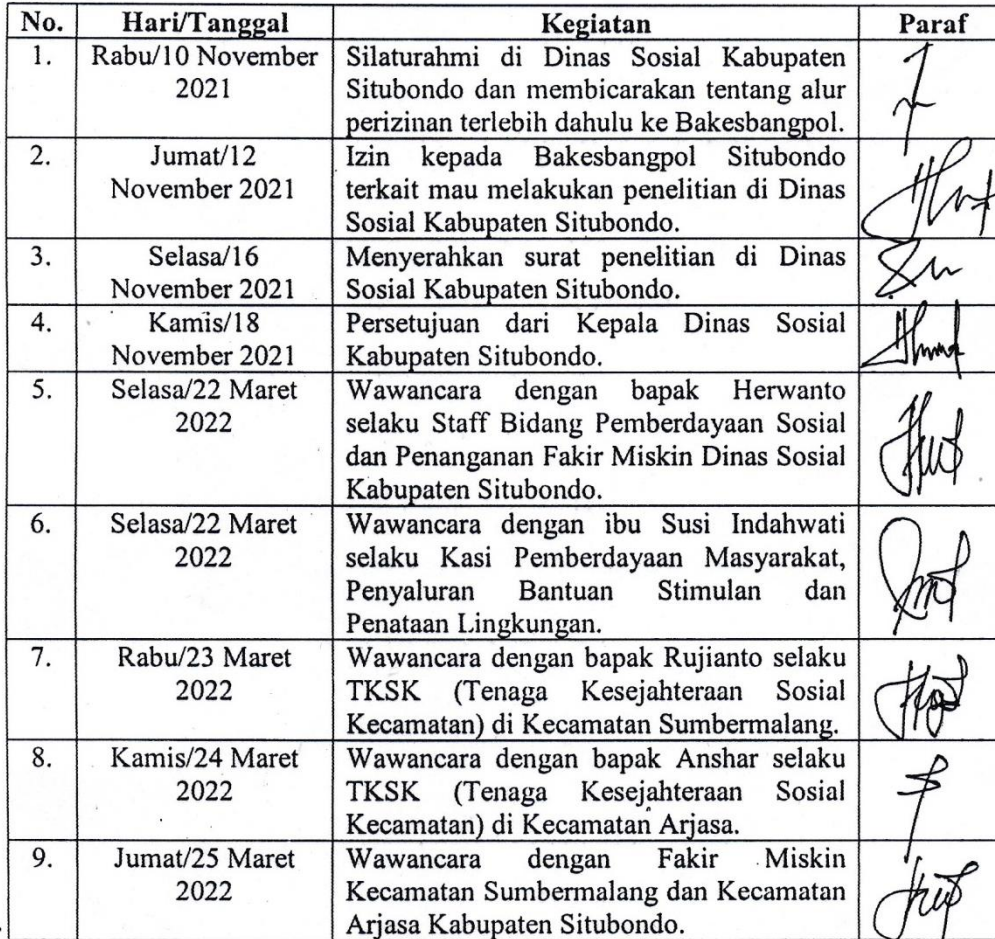 No. Hari/Tanggal Kegiatan Paraf
1. Rabu/10 November Silaturahmi di Dinas Sosial Kabupaten
2021 Situbondo dan membicarakan tentang alur
perizinan terlebih dahulu ke Bakesbangpol.
2. Jumat/12 Izin kepada Bakesbangpol Situbondo
November 2021 terkait mau melakukan penelitian di Dinas
Sosial Kabupaten Situbondo.
3. Selasa/16 Menyerahkan surat penelitian di Dinas
November 2021 Sosial Kabupaten Situbondo.
4. Kamis/18 Persetujuan dari Kepala Dinas Sosial
November 2021 Kabupaten Situbondo.
5. Selasa/22 Maret Wawancara dengan bapak Herwanto
2022 selaku Staff Bidang Pemberdayaan Sosial
dan Penanganan Fakir Miskin Dinas Sosial
Kabupaten Situbondo.
6. Selasa/22 Maret Wawancara dengan ibu Susi Indahwati
2022 selaku Kasi Pemberdayaan Masyarakat,
Penyaluran Bantuan Stimulan dan
Penataan Lingkungan.
7. Rabu/23 Maret Wawancara dengan bapak Rujianto selaku
2022 TKSK (Tenaga Kesejahteraan Sosial
Kecamatan) di Kecamatan Sumbermalang.
8. Kamis/24 Maret Wawancara dengan bapak Anshar selaku
2022 TKSK (Tenaga Kesejahteraan Sosial
Kecamatan) di Kecamatan Arjasa.
9. Jumat/25 Maret Wawancara dengan Fakir Miskin
2022 Kecamatan Sumbermalang dan Kecamatan
Arjasa Kabupaten Situbondo.